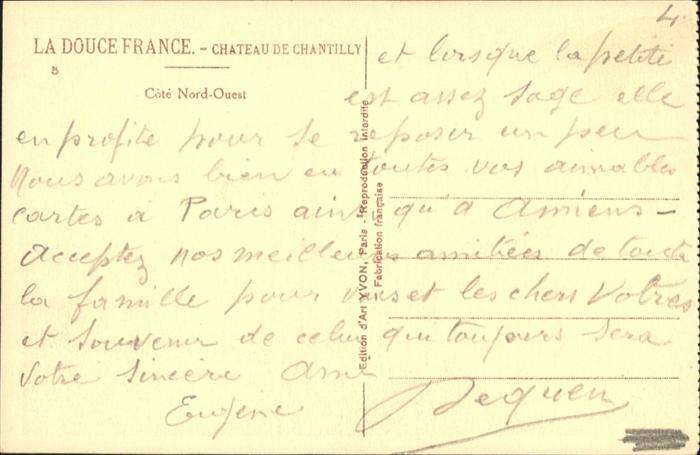 4
LA DOUCE FRANCE. - CHATEAU DE CHANTILLY
5
Côté Nord-Ouest
et lorsque la petite
est assez sage elle
en profite pour se reposer un peu
Nous avons bien eu toutes vos aimables
cartes à Paris ainsi qu'à Amiens -
Acceptez nos meilleures amitiées de toute
la famille pour vous et les chers Votres
et souvenir de celui qui toujours sera
Votre sincère Ami
Eugène
Edition d'Art YVON, Paris - Reproduction interdite
Fabrication française